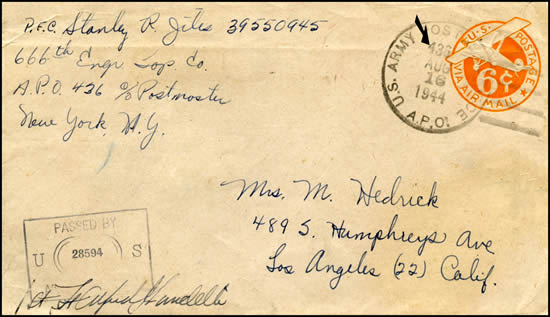 P.F.C. Stanley R. Jiles 39550945
666th Engr. Top. Co.
A.P.O. 436 c/o Postmaster
New York, N.Y.
U.S. ARMY
AUG
16
1944
A.P.O.
U.S. POSTAGE
6¢
VIA AIR MAIL
Mrs. M. Hedrick
489 S. Humphreys Ave
Los Angeles (22) Calif.
PASSED BY
U 28594 S